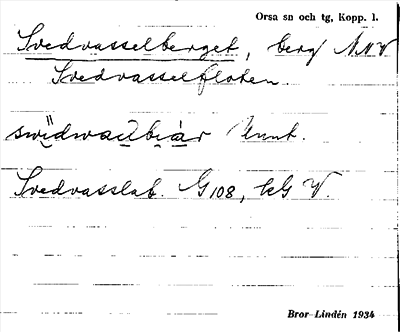 Orsa sn och tg, Kopp. l.
Svedvasselberget, berg NNV
Svedvasselfloten.
Svedvasslab. G108, kG V.
Bror Lindén 1934